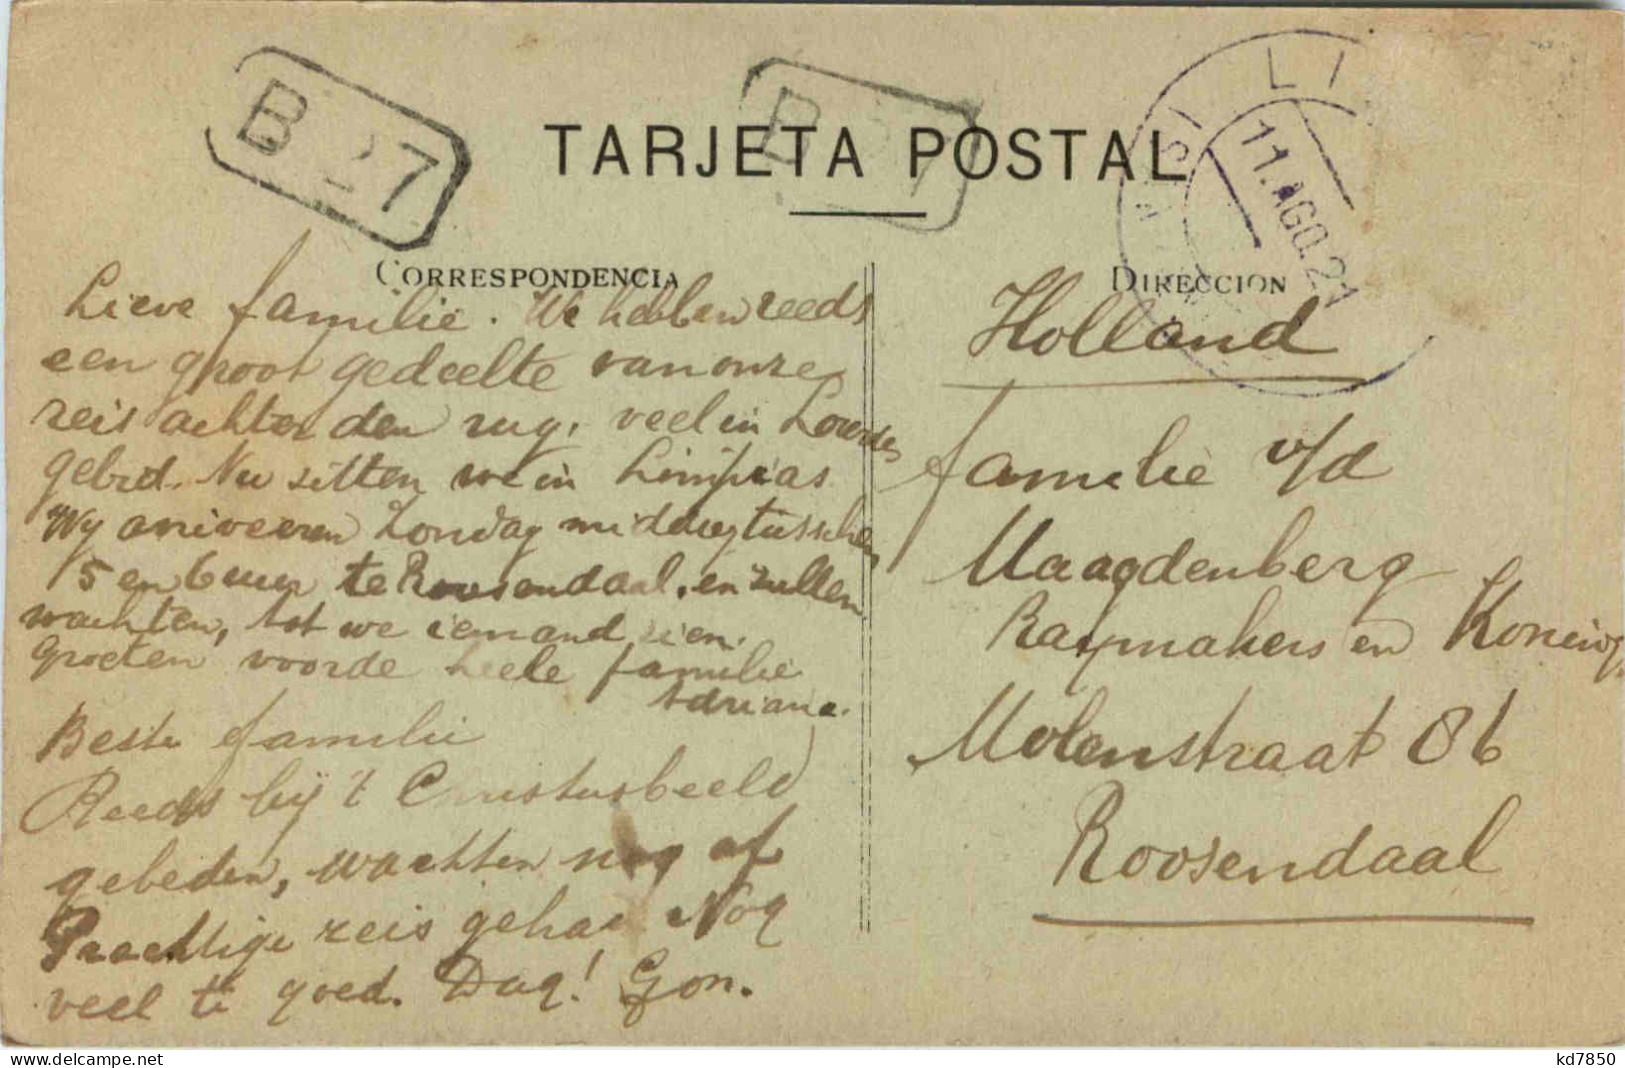 B 27
B 7
LI
11.AGO.21
TARJETA POSTAL
CORRESPONDENCIA
DIRECCION
Lieve familie. We hebben reeds
een groot gedeelte van onze
reis achter den rug, veel in Lourdes
gebed. Nu zitten we in Limpias
Wy ariveeren Zondag middag tusschen
5 en 6 uur te Roosendaal, en zullen
wachten, tot we iemand zien.
Groeten voor de heele familie
Adriana.
Beste familie
Reeds bij 't Christusbeeld
gebeden, wachten nog af
Prachtige reis gehad Nog
veel te goed. Dag! Gon.
Holland
familie v/d
Maagdenberg
Raymakers en Koning
Molenstraat 86
Roosendaal
www.delcampe.net
kd7850